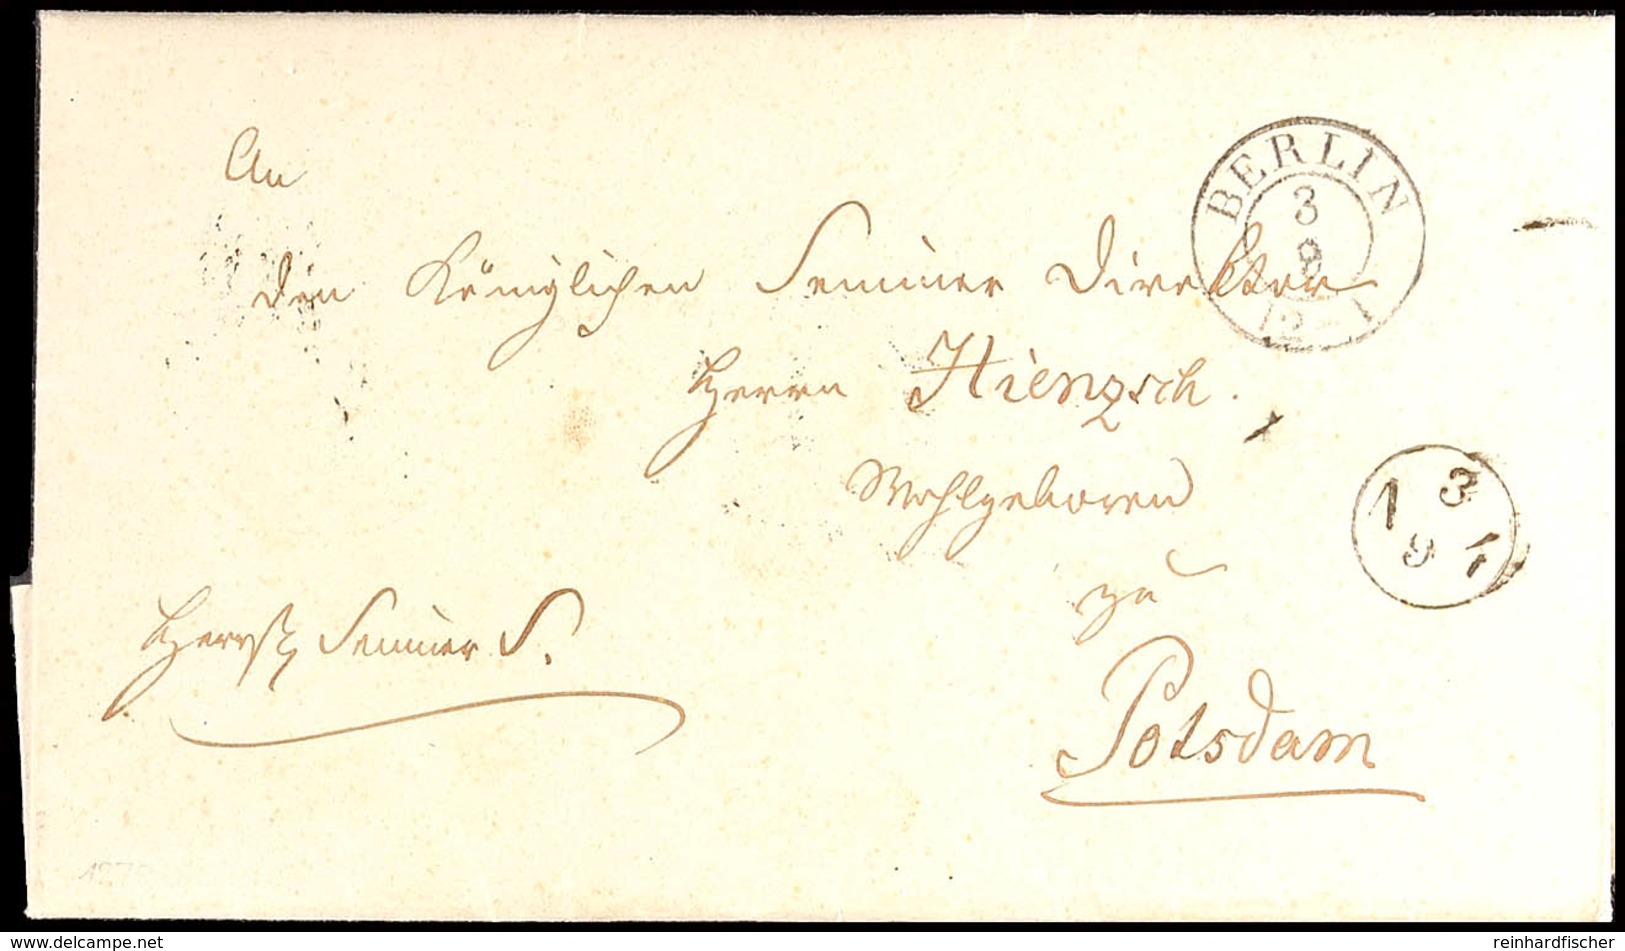 An
BERLIN
3
8
12 - 1
den Königlichen Seminar Direktor
Herrn Hienzsch.
Wohlgeboren
3
N 4
9
zu
Seminar S.
Potsdam
www.delcampe.net
reinhardfischer